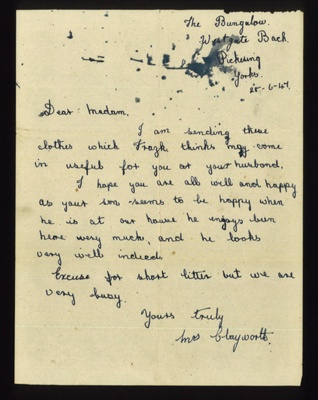 The Bungalow.
Westgate Back
Pickering
Yorks.
25-6-47.
Dear Madam,
I am sending these
clothes which Frank thinks may come
in useful for you or your husband.
I hope you are all well and happy
as your son seems to be happy when
he is at our house he enjoys bun
here wery much, and he looks
very well indeed.
Excuse for short litter but we are
very busy.
Yours truly
Mrs Clayworth.